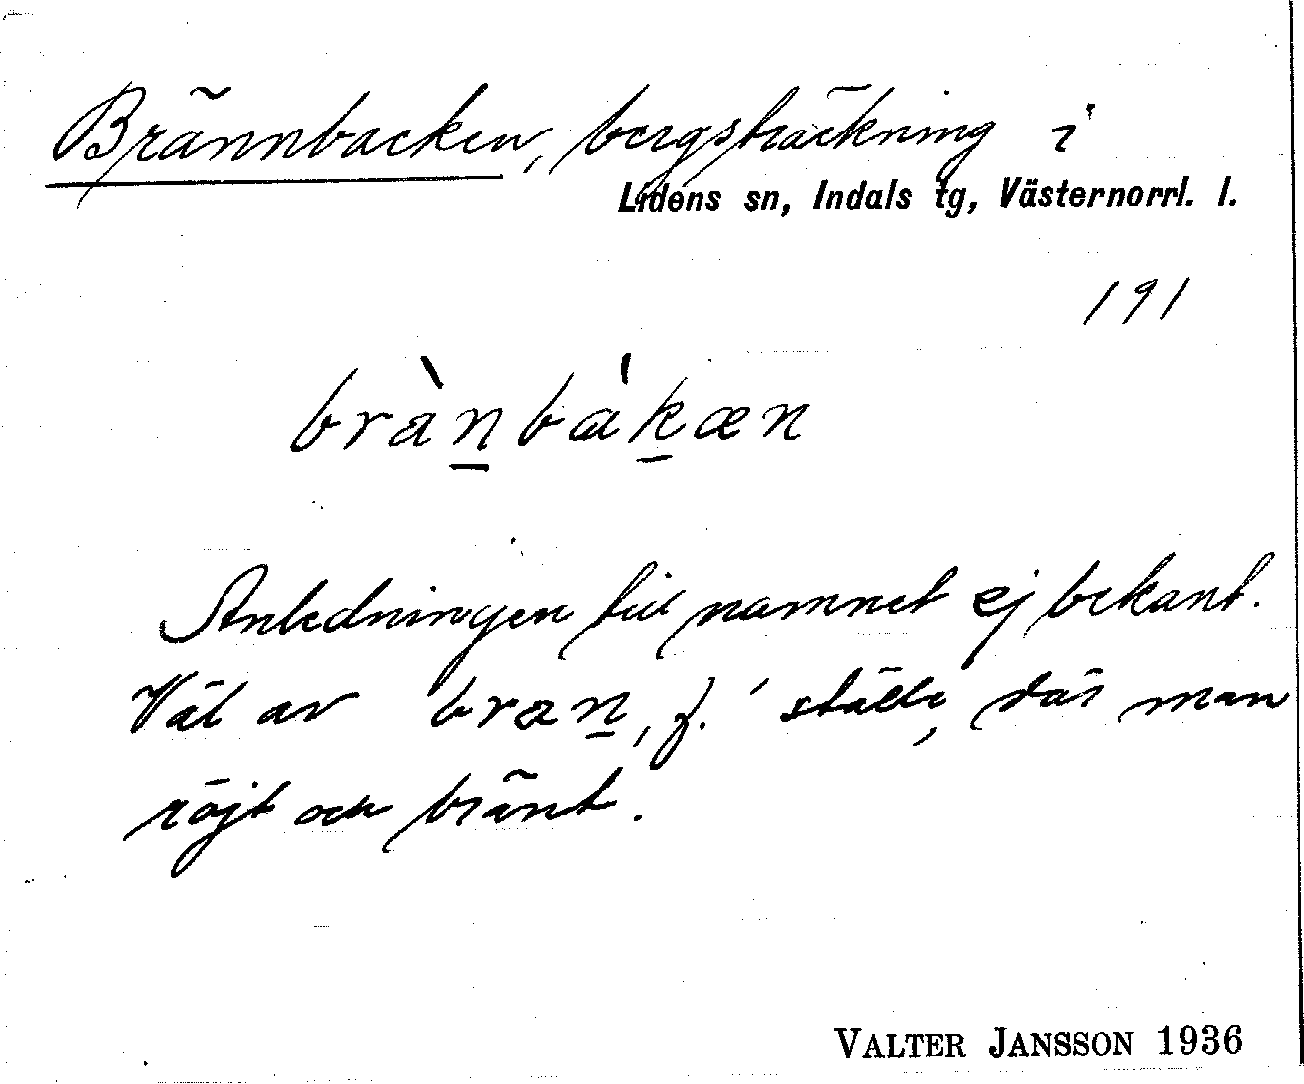 Brännbacken, bergsträckning i
Lidens sn, Indals tg, Västernorrl. l.
191
bràn̲bák̲æn
Anledningen till namnet ej bekant.
Väl av bran̲, f. 'ställe, där man
röjt och bränt.
VALTER JANSSON 1936